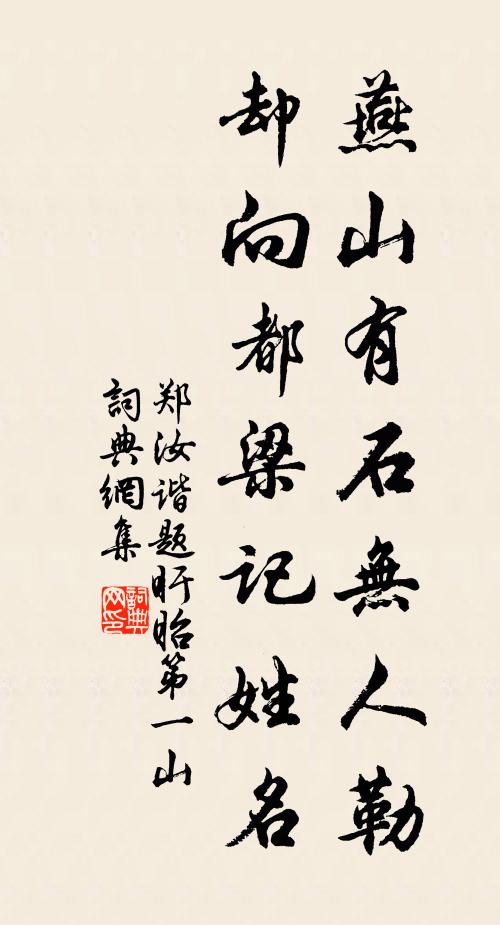 燕山有石無人勒
却向都梁记姓名
郑汝谐题盱眙第一山
詞典網集
詞典网印